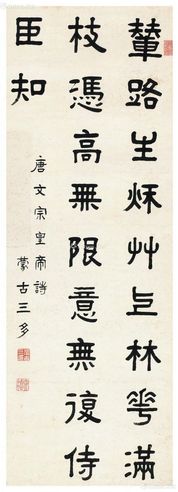 輦路生秌艸上林華滿
枝憑高無限意無復侍
臣知
唐文宗皇帝詩
蒙古三多